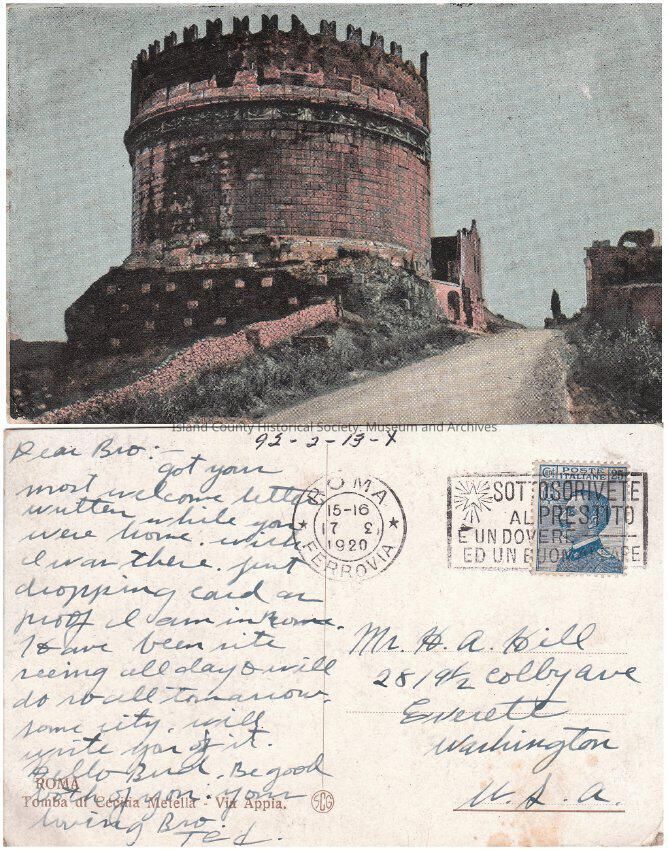 Island County Historical Society, Museum and Archives
92-2-13-X
Dear Bro:-
got your
most welcome letter
written while you
were home. wish
I was there. just
dropping card as
proof I am in Rome.
Have been site
seeing all day & will
do so all tomarrow.
some city. will
write you of it.
Hello Bud. Be good
both of you. your
loving Bro.
Ted.
ROMA
Tomba di Cecilia Metella - Via Appia.
SCG
ROMA
15-16
17 E
1920
FERROVIA
POSTE
ITALIANE
SOTTOSCRIVETE
AL PRESTITO
E UN DOVERE
ED UN BUON AFFARE
Mr. H. A. Hill
2819½ Colby ave
Everett
Washington
U.S.A.